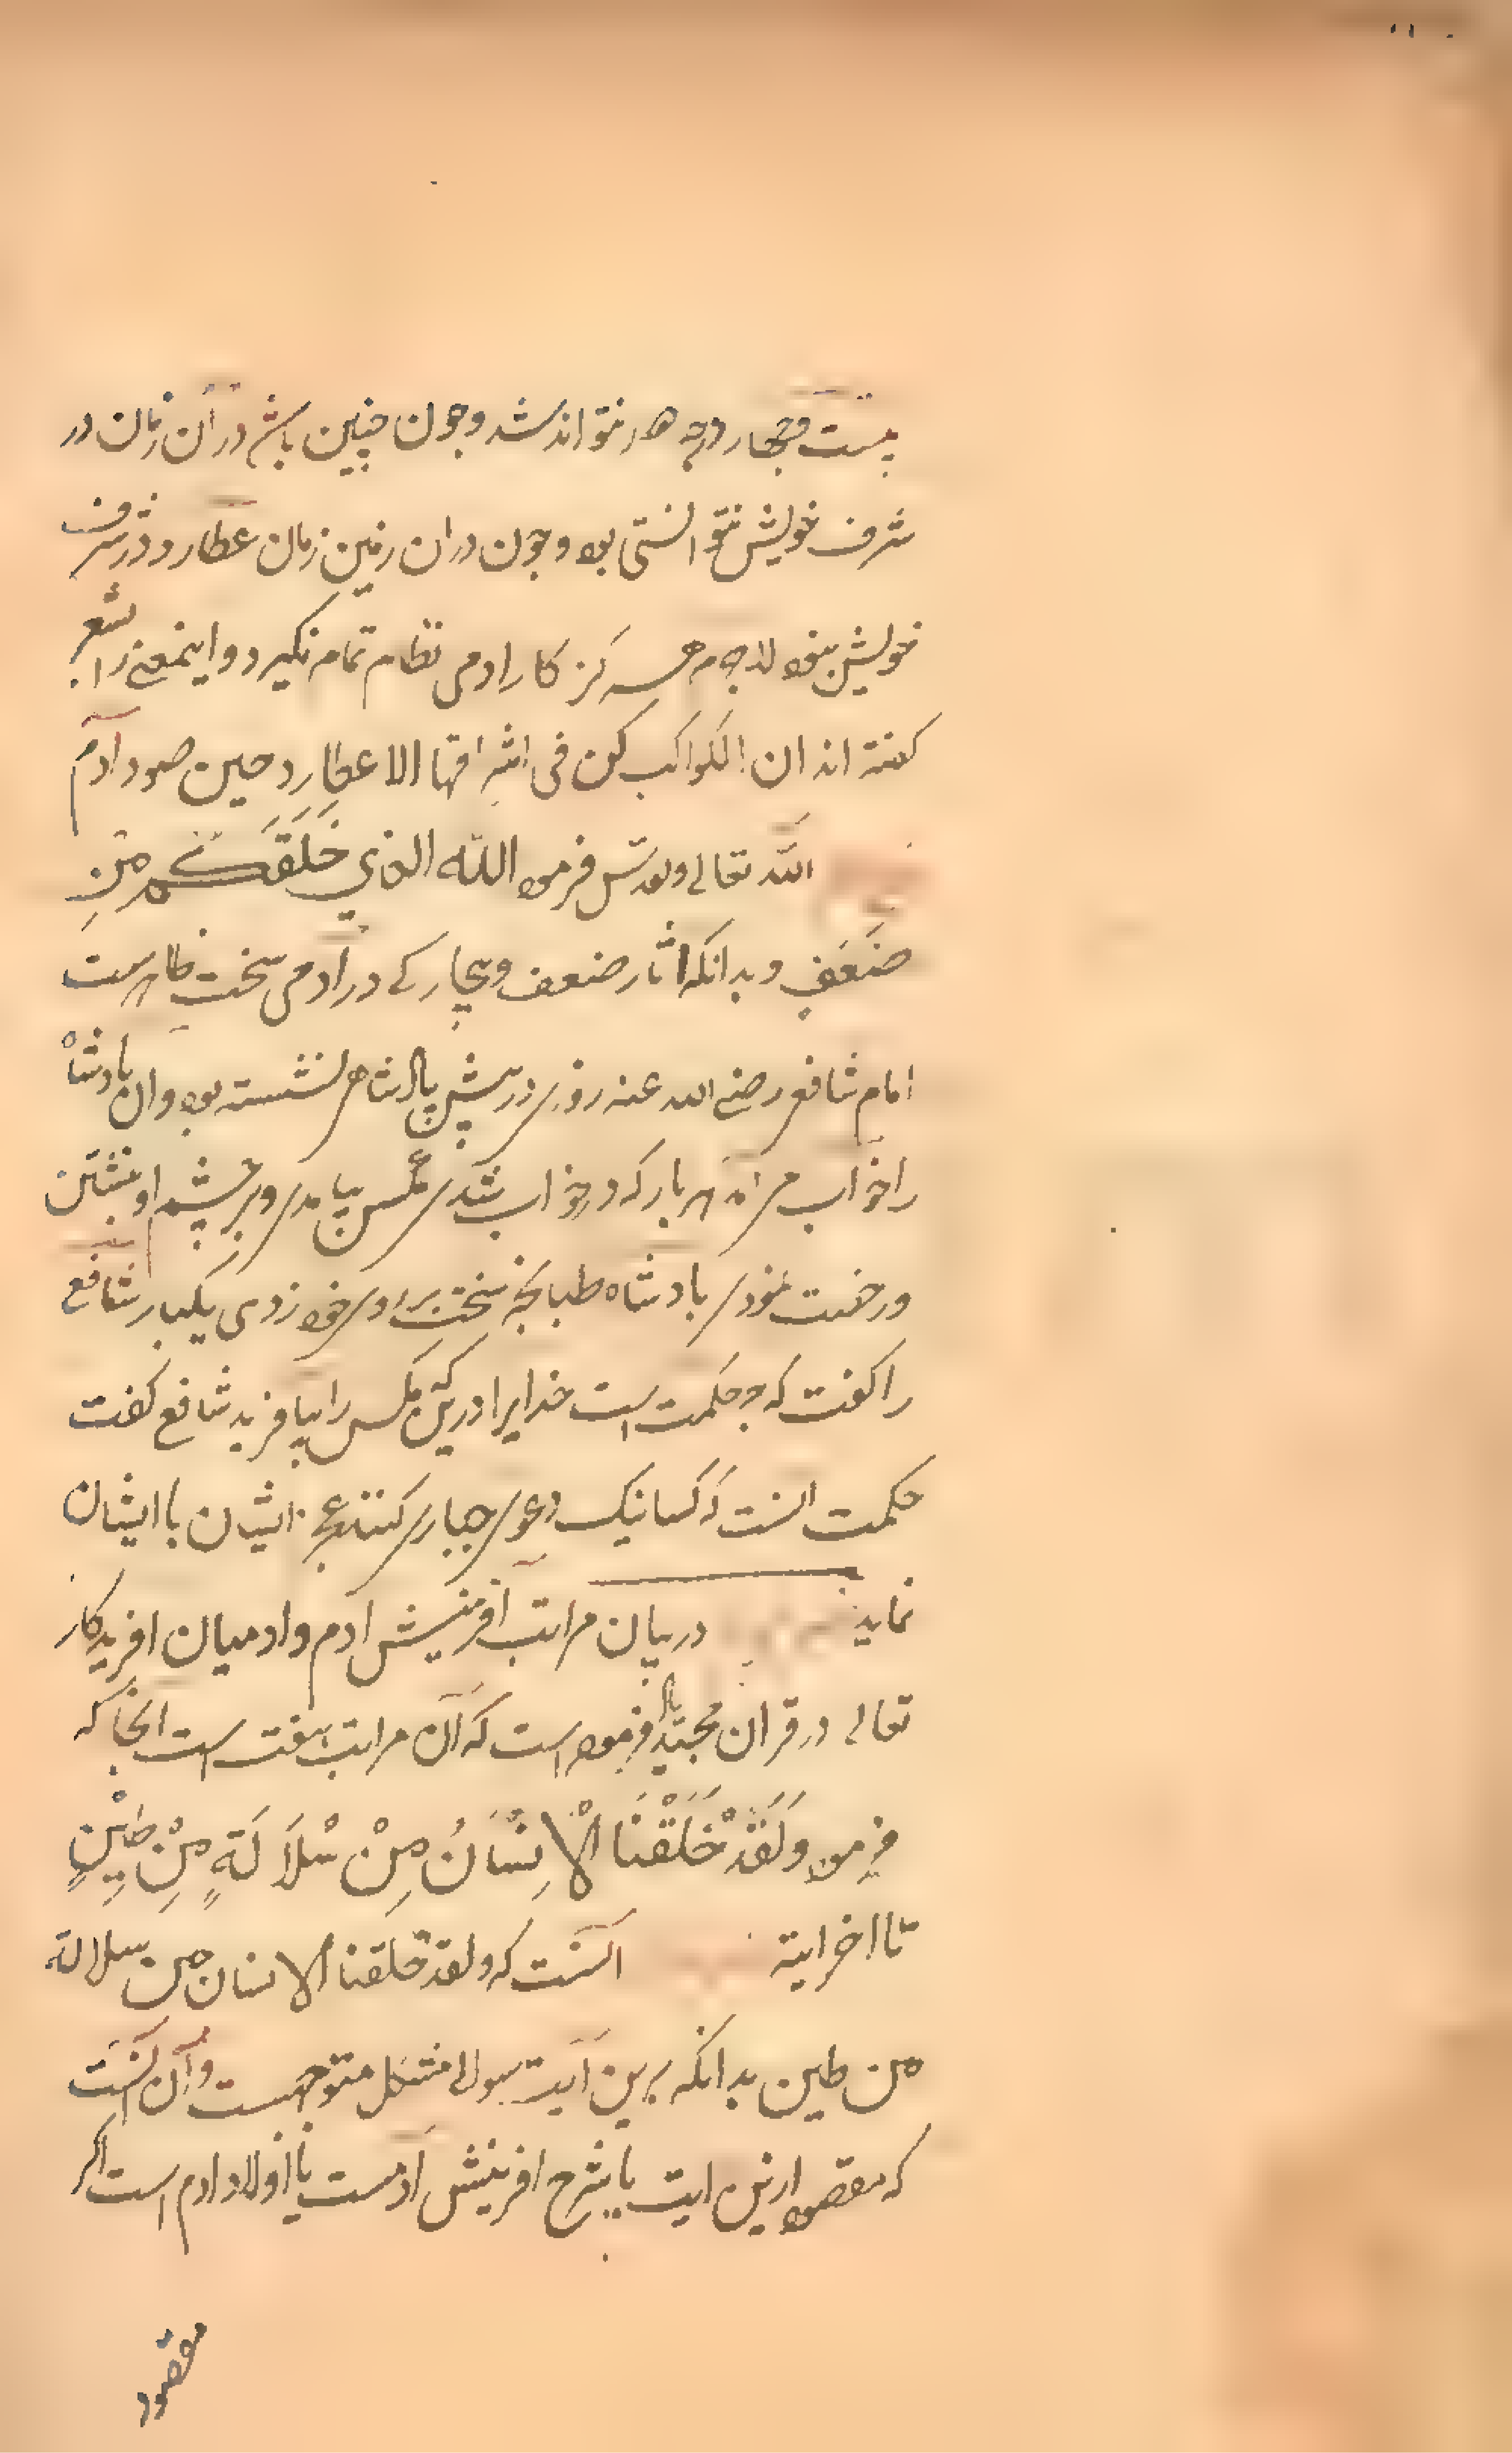 بیست و چهار درجه هر نتواند شد و چون چنین باشد در آن زمان در
شرف خویش نتوانستی بود و چون در ان زمین زمان عطارد در شرف
خویش نبود لاجرم هرگز کار ادمی نظام تمام نگیرد و اینمعنی را بشعر
گفته اند ان الکواکب کن فی اشرافها الا عطارد حین صور آدم
الله تعالی وتقدس فرمود الله الذي خَلَقَكُم مِن
ضَعَفٍ و بدانکه اثار ضعف و بیچارکی در آدمی سخت ظاهرست
امام شافعی رضی الله عنه روزی در پیش پادشاهی نشسته بود و ان پادشاه
را خواب می آمد هر بار که در خواب شدی مگس بیامدی و بر چشم او نشتن
و رخت نمودی بادشاه طبانچه سخت بر روی خود زدی یکبار شافعی
را گفت که چه حکمت است خدایرا درین که مگس را بیافرید شافعی گفت
حکمت انست که کسانیک دعوی جباری کنند عجز ایشان با ایشان
نماید در بیان مراتب آفرینش ادم و ادمیان افریدکار
تعالی در قران مجید فرموده است که آن مراتب هفت است انجا که
فرمود وَلَقَدْ خَلَقْنَا الْاِنْسَانَ مِنْ سُلاَلَةٍ مِنْ طِيْنٍ
تا اخر ایة آنست که ولقد خلقنا الانسان من سلالة
من طین بدانکه برین آیت سوالی مشکل متوجهست و آن آنست
که مقصود ازین ایت یا شرح افرینش آدمست یا اولاد ادم است اکر
مقصود